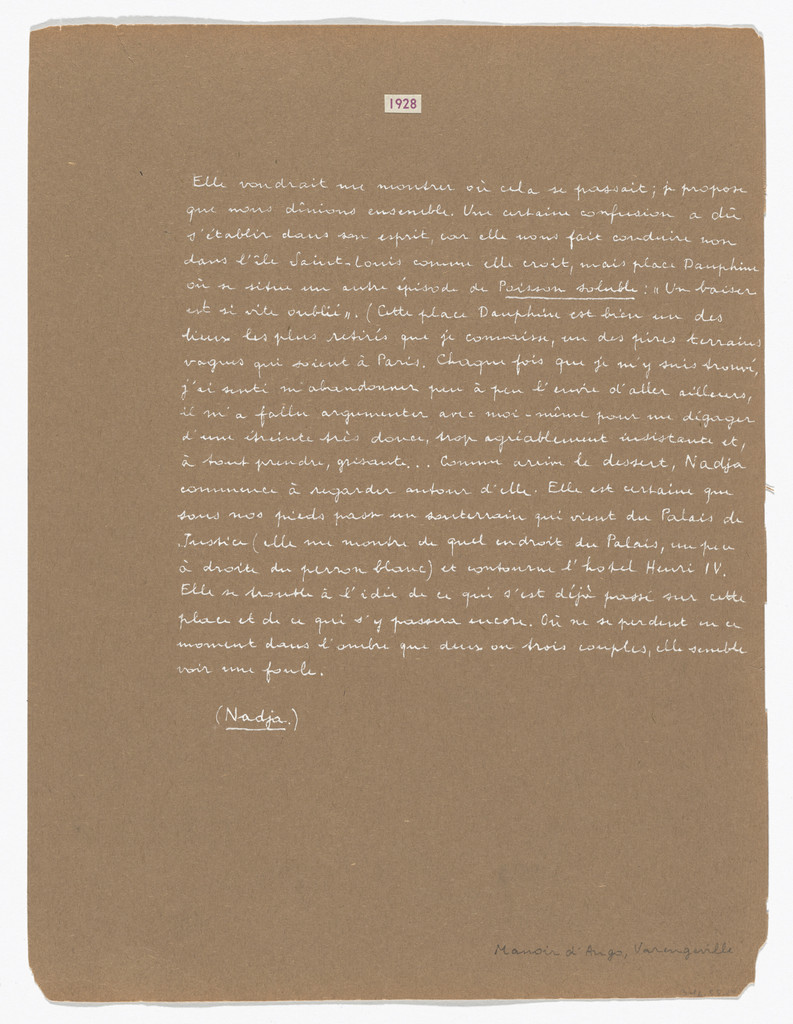 1928
Elle voudrait me montrer où cela se passait ; je propose
que nous dînions ensemble. Une certaine confusion a dû
s'établir dans son esprit, car elle nous fait conduire non
dans l'île Saint-Louis comme elle croit, mais place Dauphine
où se situe un autre épisode de Poisson soluble : „Un baiser
est si vite oublié". (Cette place Dauphine est bien un des
lieux les plus retirés que je connaisse, un des pires terrains
vagues qui soient à Paris. Chaque fois que je m'y suis trouvé,
j'ai senti m'abandonner peu à peu l'envie d'aller ailleurs,
il m'a fallu argumenter avec moi-même pour me dégager
d'une étreinte très douce, trop agréablement insistante et,
à tout prendre, grisante... Comme arrive le dessert, Nadja
commence à regarder autour d'elle. Elle est certaine que
sous nos pieds passe un souterrain qui vient du Palais de
Justice (elle me montre de quel endroit du Palais, un peu
à droite du perron blanc) et contourne l'hotel Henri IV.
Elle se trouble à l'idée de ce qui s'est déjà passé sur cette
place et de ce qui s'y passera encore. Où ne se perdent en ce
moment dans l'ombre que deux ou trois couples, elle semble
voir une foule.
(Nadja.)
Manoir d'Ango, Varengeville